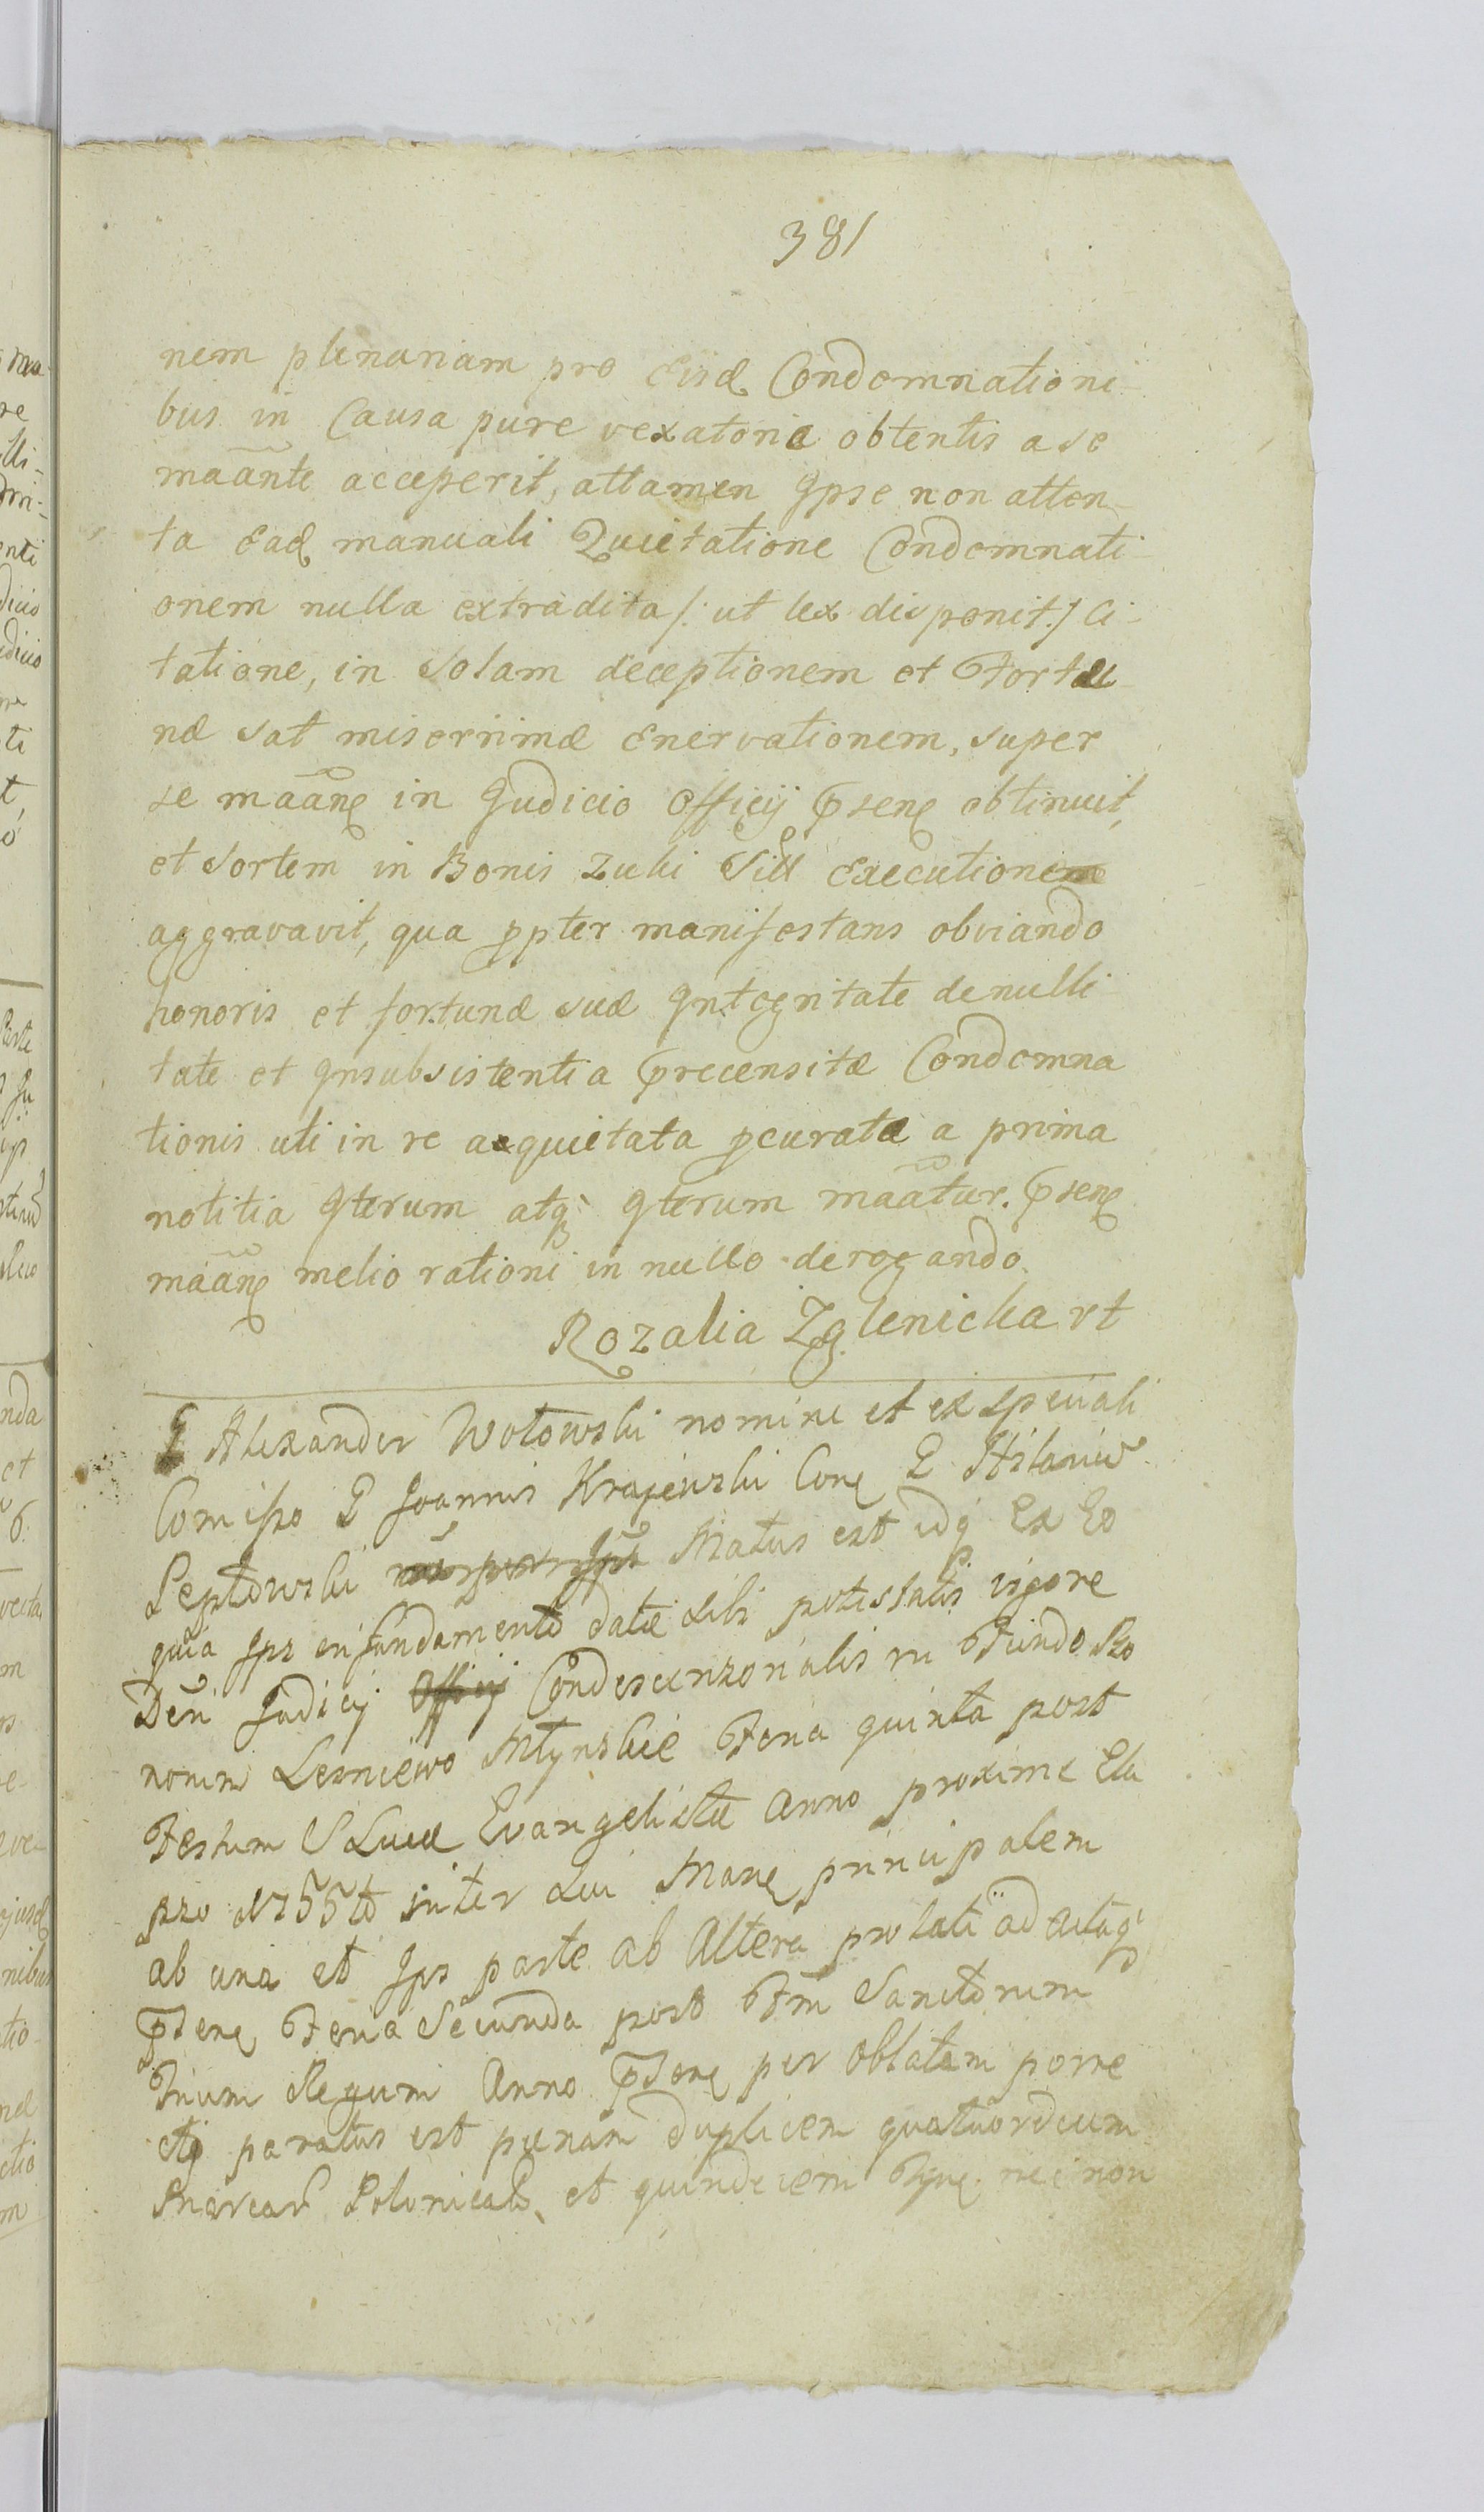 381
nem plenariam pro Eisd Condemnationi-
bus in Causa pure vexatoria obtentis a se
maānte acceperit, attamen Ipse non atten-
ta Ead manuali Quietatione Condemnati-
onem nulla extradita /: ut lex disponit :/ Ci-
tatione, in solam deceptionem et Fortu-
næ sat miserrimæ Enervationem, super
se maāne in Judicio Officij Psene obtinuit,
et sortem in Bonis Zuki Sitt Executione
aggravavit, qua ppter manifestans obviando
honoris et fortunæ suæ Integritate de nulli
tate et Insubsistentia Precensitæ Condemna
tionis uti in re acquietata pcuratæ a prima
notitia Iterum atq Iterum maātur. Psene
maāne melio rationi in nullo derogando.
Rozalia Zglenicka rt
G Alexander Wotowski nomine et ex speciali
Comisso G Joannis Krajewski Cone G Hilariū
Peptowski Matus est idq Ex Eo
quia Ips in fundamento datæ sibi potestatis vigore
Decri Judicij Condescensorialis in Fundo Bo
norum Lesniewo Młynskie Feria quinta post
Festum S Lucæ Evangelistæ Anno proxime Ela
pso 1755to inter sui Mane principalem
ab una et Ips parte ab Altera prolati ad Actaq
Psene Feria Secunda post Ftm Sanctorum
Trium Regum Anno Psene per oblatam porre
cti paratus est pænam duplicem quatuordecim
Marcar Polonicals, et quindecem nec non